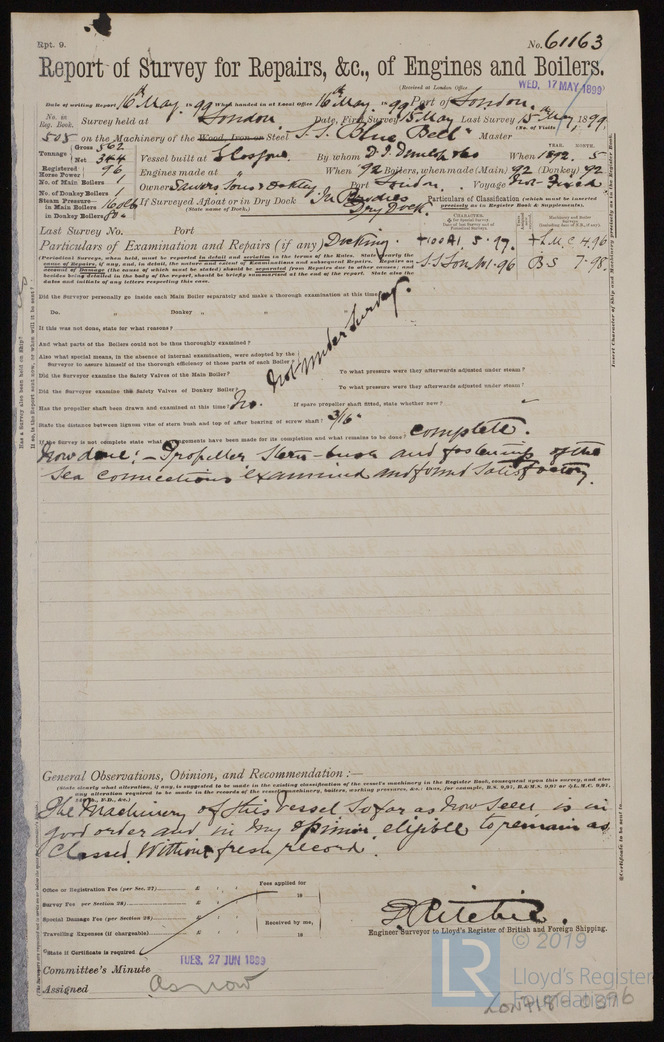 Rpt. 9.
No. 61163
Report of Survey for Repairs, &c., of Engines and Boilers.
(Received at London Office
WED. 17 MAY 1899
Date of writing Report 16th May 1899 When handed in at Local Office 16th May 1899 Port of London.
No. in Reg. Book. Survey held at London Date, First Survey 15 May Last Survey 15th May, 1899
(No. of Visits
508 on the Machinery of the Wood, Iron or Steel S.S. "Blue Bell" Master
Tonnage Gross 562 Net 344 Vessel built at Glasgow By whom D. J. Dunlop & Co When 1892. 5
YEAR. MONTH.
Registered Horse Power 96 Engines made at " When 92 Boilers, when made (Main) 92 (Donkey) 92
No. of Main Boilers 1
No. of Donkey Boilers 1 Owners Port London. Voyage Not Fixed
Steam Pressure— in Main Boilers 160 lb If Surveyed Afloat or in Dry Dock In Dry Dock.
in Donkey Boilers 80
(State name of Dock.)
Particulars of Classification (which must be inserted precisely as in Register Book & Supplements).
Last Survey No. Port
Particulars of Examination and Repairs (if any) Docking. +100A1. 5.97. +L.M.C. 4.96
S.S. Lon No1-96 B S 7.98
(Periodical Surveys, when held, must be reported in detail and seriatim in the terms of the Rules. State clearly the cause of Repairs, if any, and, in detail, the nature and extent of Examinations and subsequent Repairs. Repairs on account of Damage (the cause of which must be stated) should be separated from Repairs due to other causes; and besides being detailed in the body of the report, should be briefly summarized at the end of the report. State also the dates and initials of any letters respecting this case.
Did the Surveyor personally go inside each Main Boiler separately and make a thorough examination at this time?
Do. " Donkey " " "
If this was not done, state for what reasons?
And what parts of the Boilers could not be thus thoroughly examined?
Also what special means, in the absence of internal examination, were adopted by the Surveyor to assure himself of the thorough efficiency of those parts of each Boiler?
Not under Survey.
Did the Surveyor examine the Safety Valves of the Main Boiler? To what pressure were they afterwards adjusted under steam?
Did the Surveyor examine the Safety Valves of Donkey Boiler? To what pressure were they afterwards adjusted under steam?
Has the propeller shaft been drawn and examined at this time? No. If spare propeller shaft fitted, state whether new?
State the distance between lignum vitæ of stern bush and top of after bearing of screw shaft? 3/16"
If the Survey is not complete state what arrangements have been made for its completion and what remains to be done? Complete.
Now done: – Propeller Stern-bush and fastenings of the
Sea Connections examined and found satisfactory.
General Observations, Opinion, and Recommendation:—
(State clearly what alteration, if any, is suggested to be made in the existing classification of the vessel's machinery in the Register Book, consequent upon this survey, and also any alteration required to be made in the records of the vessel's machinery, boilers, working pressures, &c.; thus, for example, B.S. 9,97, B.&M.S. 9,97 or L.M.C. 9,97,
F.D., &c.)
The Machinery of this Vessel so far as now seen is in
good order and in my opinion eligible to remain as
Classed. Without fresh record.
Office or Registration Fee (per Sec. 27) £ : : Fees applied for
Survey Fee (per Section 28) £ : : 18
Special Damage Fee (per Section 28) £ : : Received by me,
Travelling Expenses (if chargeable) £ : : 18
State if Certificate is required
D. Ritchie.
Engineer Surveyor to Lloyd's Register of British and Foreign Shipping.
Committee's Minute TUES. 27 JUN 1899
Assigned As now
© 2019
LR
Lloyd's Register
Foundation